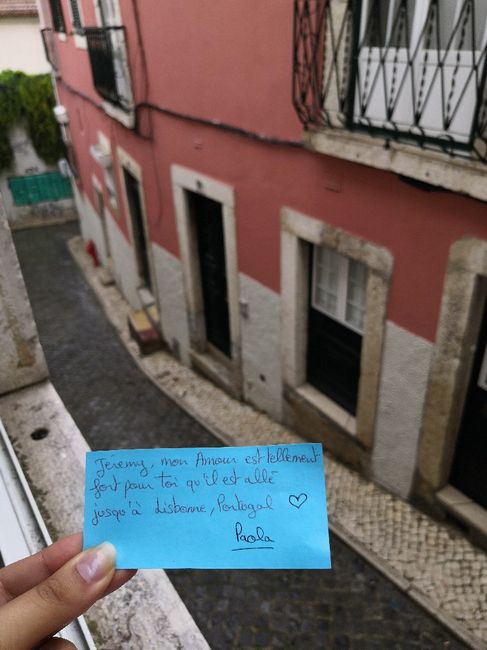 Jérémy, mon Amour est tellement
fort pour toi qu'il est allé
jusqu'à Lisbonne, Portugal ♡
Paola